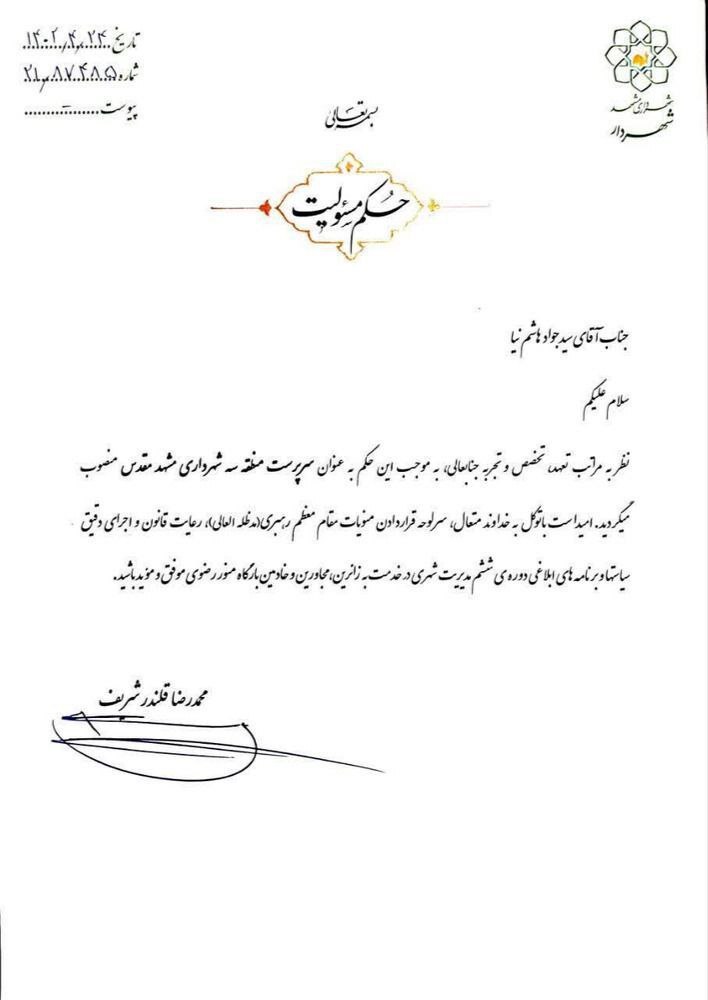 تاریخ ۱۴۰۲/۴/۲۴
شماره ۲۱/۸۷۴۸۵
پیوست -
شهرداری مشهد
شهردار
بسمه تعالی
حکم مسئولیت
جناب آقای سید جواد هاشم نیا
سلام علیکم
نظر به مراتب تعهد، تخصص و تجربه جنابعالی، به موجب این حکم به عنوان سرپرست منطقه سه شهرداری مشهد مقدس منصوب
میگردید. امید است با توکل به خداوند متعال، سرلوحه قراردادن منویات مقام معظم رهبری(مدظله العالی)، رعایت قانون و اجرای دقیق
سیاستها و برنامه های ابلاغی دوره ی ششم مدیریت شهری در خدمت به زائرین، مجاورین و خادمین بارگاه منور رضوی موفق و موید باشید.
محمدرضا قلندر شریف